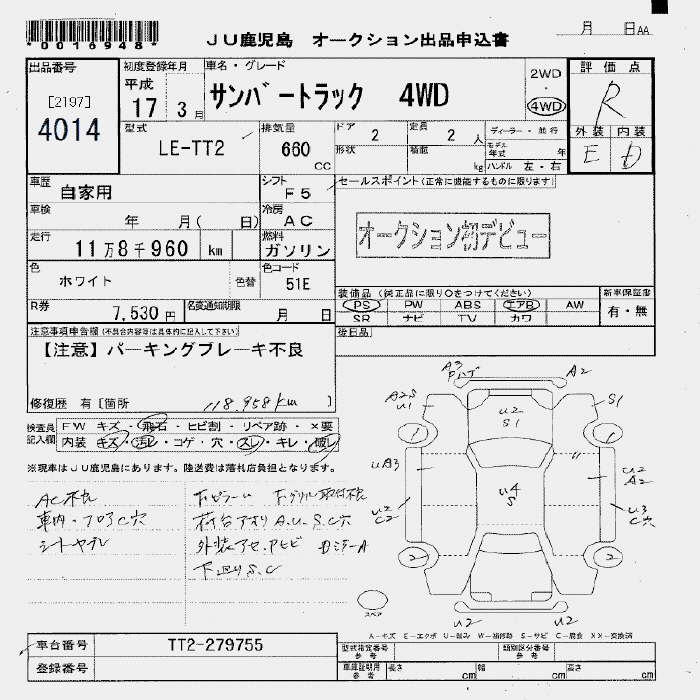 *0016948*
JU鹿児島 オークション出品申込書
月 日AA
出品番号
[2197]
4014
初度登録年月
平成
17 3月
車名・グレード
サンバートラック 4WD
2WD
・
4WD
評価点
R
外装 内装
E D
型式
LE-TT2
排気量
660
CC
ドア
2
定員
2人
形状
積載
kg
ディーラー・並行
モデル年式 年
ハンドル 左・右
車歴
自家用
シフト
F5
セールスポイント(正常に機能するものに限ります)
オークション初デビュー
車検
年 月( 日)
冷房
AC
走行
11万8千960 km
燃料
ガソリン
色
ホワイト
色替
色コード
51E
R券
7,530円
名変通知期限
月 日
装備品(純正品に限り○をつけてください)
PS PW ABS エアB AW
SR ナビ TV カワ
新車保証書
有・無
後日品
注意事項申告欄(不具合内容等は具体的に記入して下さい)
【注意】パーキングブレーキ不良
修復歴 有[箇所 118,958km ]
検査員記入欄
FW キズ・飛石・ヒビ割・リペア跡・×要
内装 キズ・汚レ・コゲ・穴・スレ・キレ・破レ
※現車はJU鹿児島にあります。陸送費は落札店負担となります。
AC不良
車内・フロアC穴
シートヤブレ
荷台アオリA.U.S.C穴
下廻りS.C
A3
A2
A2S
U1
S1
U2
S1
1
1
UA3
U4
S
U2
A2
U2
C2
U3
C穴
2
2
スペア
U2
U2
A-キズ E-エクボ U-凹み W-補修跡 S-サビ C-腐食 XX-交換済
車台番号
TT2-279755
登録番号
型式指定番号
参考
類別区分番号
参考
車庫証明用
参考
長さ cm
幅 cm
高さ cm